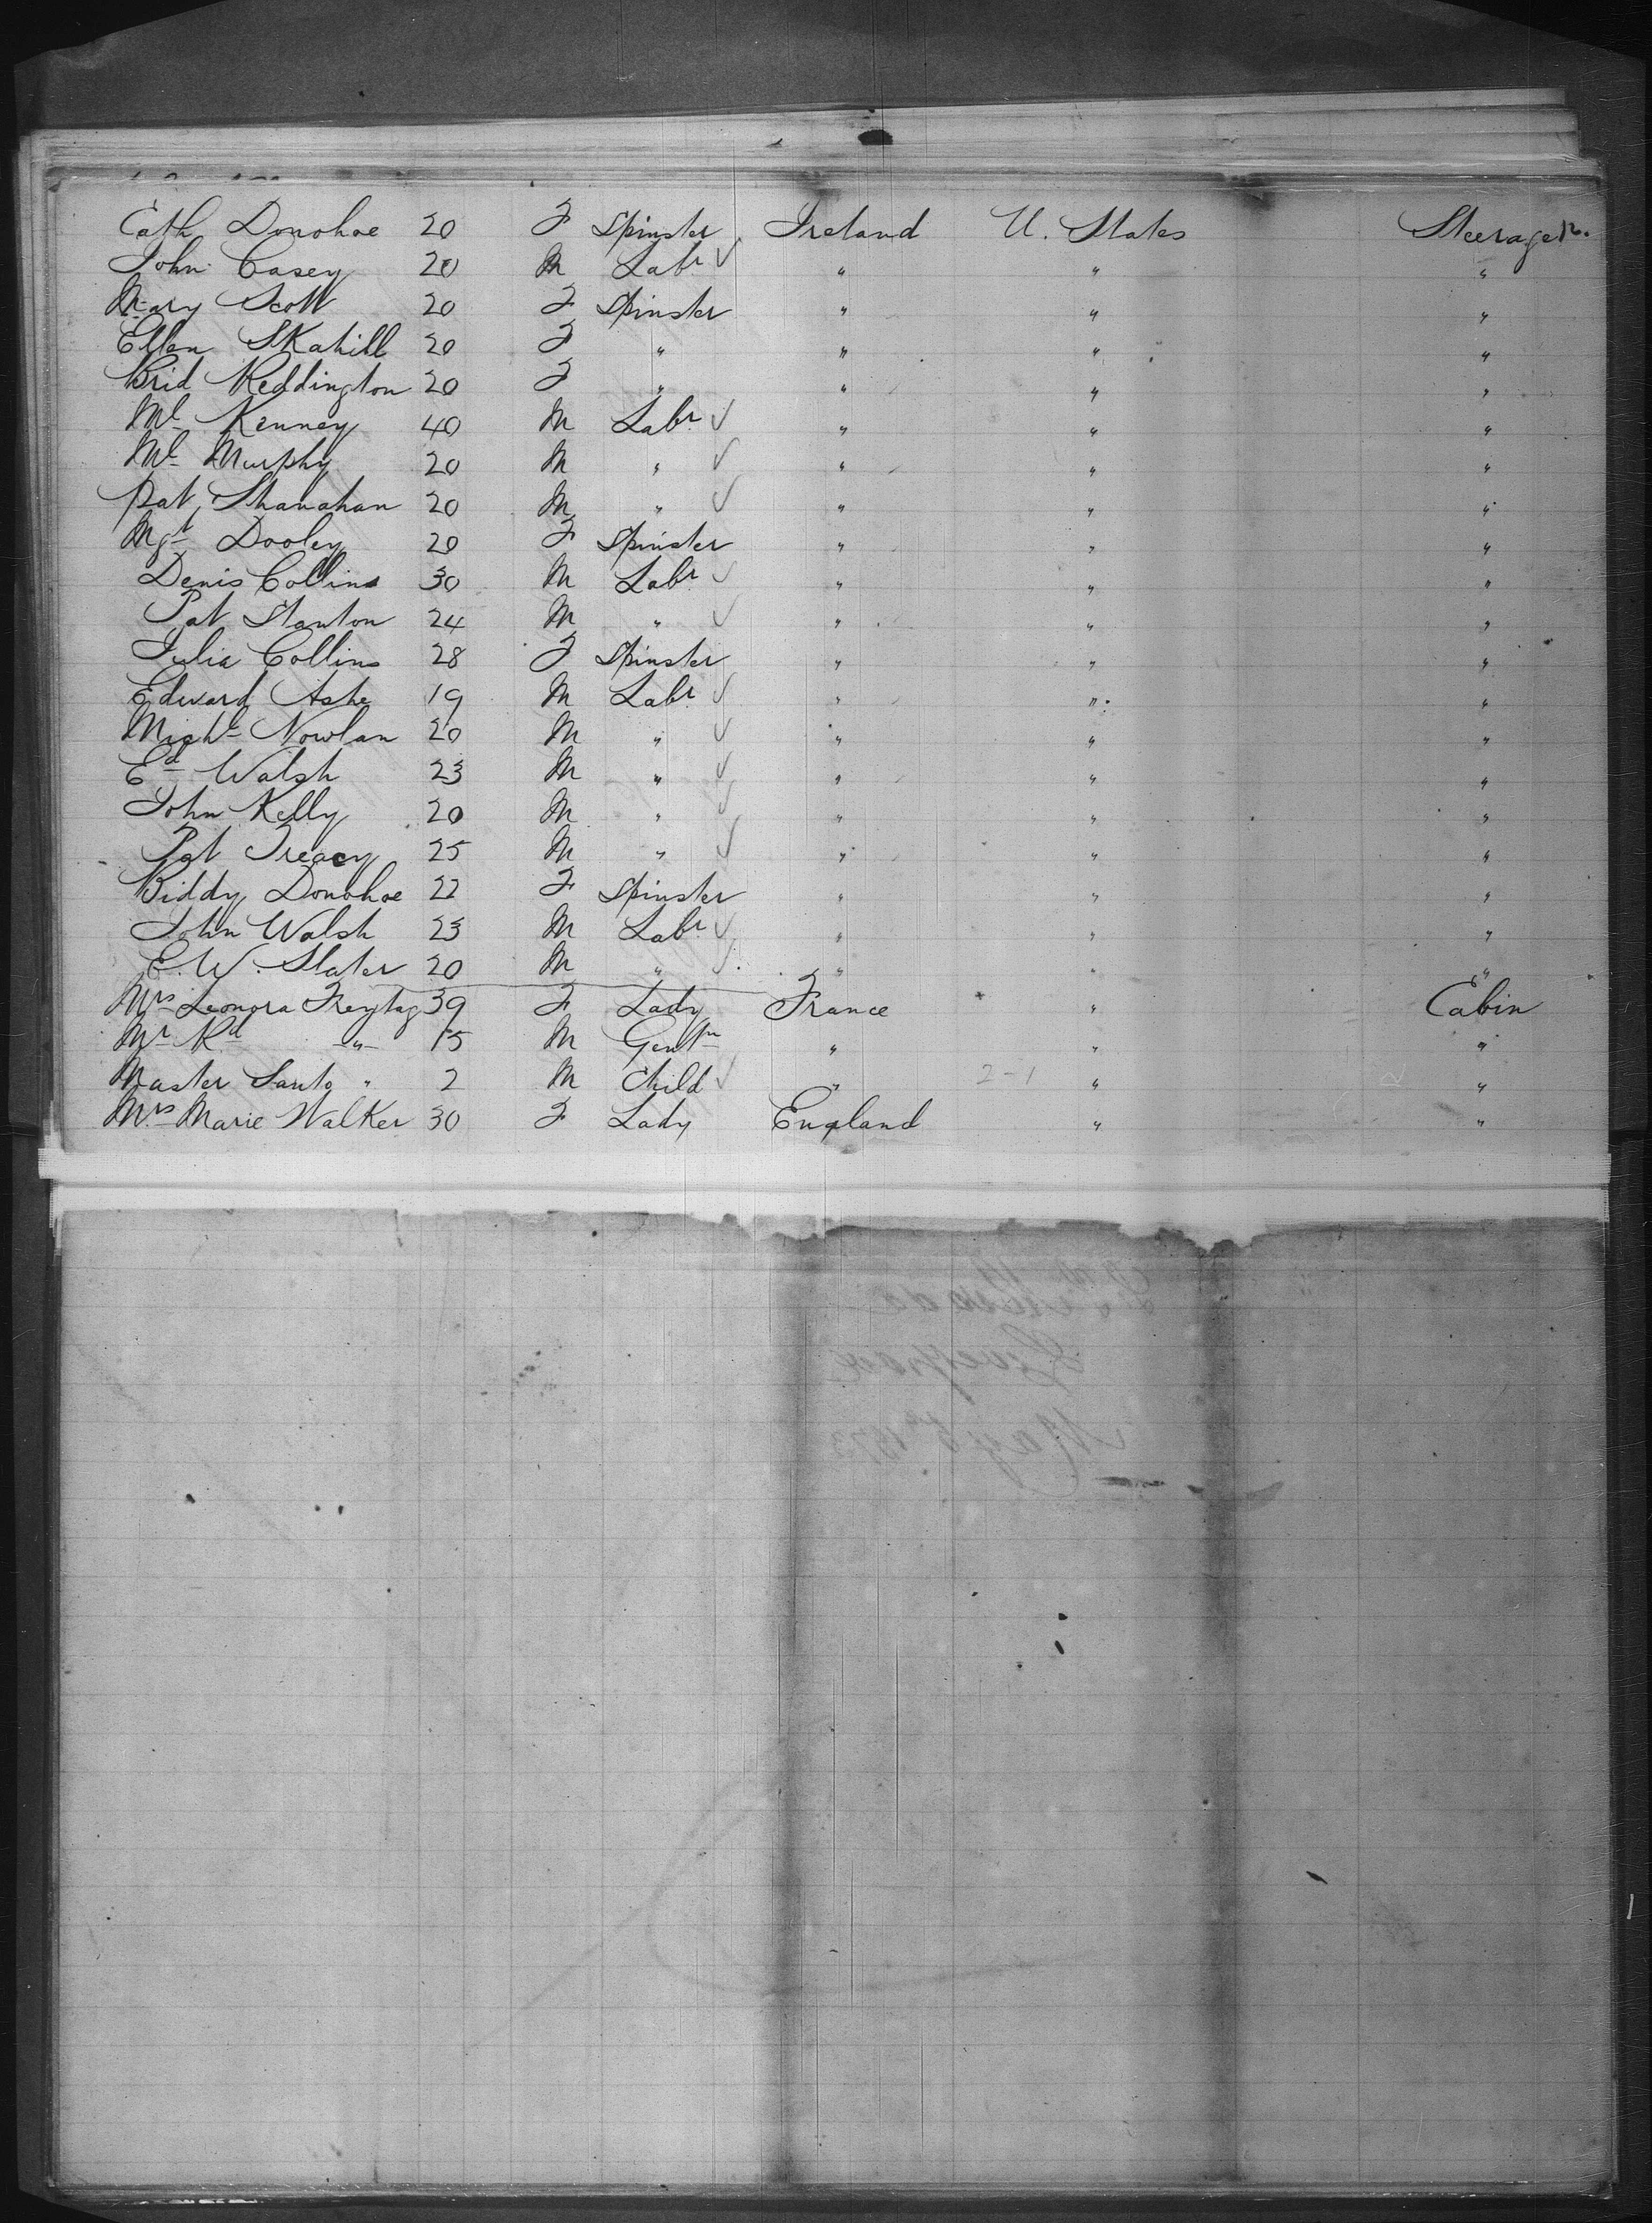 Cath Donohoe 20 F Spinster Ireland U. States Steerage
John Casey 20 M Labr ✓ " " "
Mary Scott 20 F Spinster " " "
Ellen Skahill 20 F " " " "
Brid Reddington 20 F " " " "
Ml Kenney 40 M Labr ✓ " " "
Ml Murphy 20 M " ✓ " " "
Pat Shanahan 20 M " ✓ " " "
Mgt Dooley 20 F Spinster " " "
Denis Collins 30 M Labr ✓ " " "
Pat Stanton 24 M " ✓ " " "
Julia Collins 28 F Spinster " " "
Edward Ashe 19 M Labr ✓ " " "
Michl Nowlan 20 M " ✓ " " "
Ed Walsh 23 M " ✓ " " "
John Kelly 20 M " ✓ " " "
Pat Treacy 25 M " ✓ " " "
Biddy Donohoe 22 F Spinster " " "
John Walsh 23 M Labr ✓ " " "
E. W. Slater 20 M " ✓ " " "
Mrs Leonora Freytag 39 F Lady France " Cabin
Mr Rd " 15 M Gentn " " "
Master Santo " 2 M Child ✓ " 2-1 " "
Mrs Marie Walker 30 F Lady England " "
Liverpool
May 1873